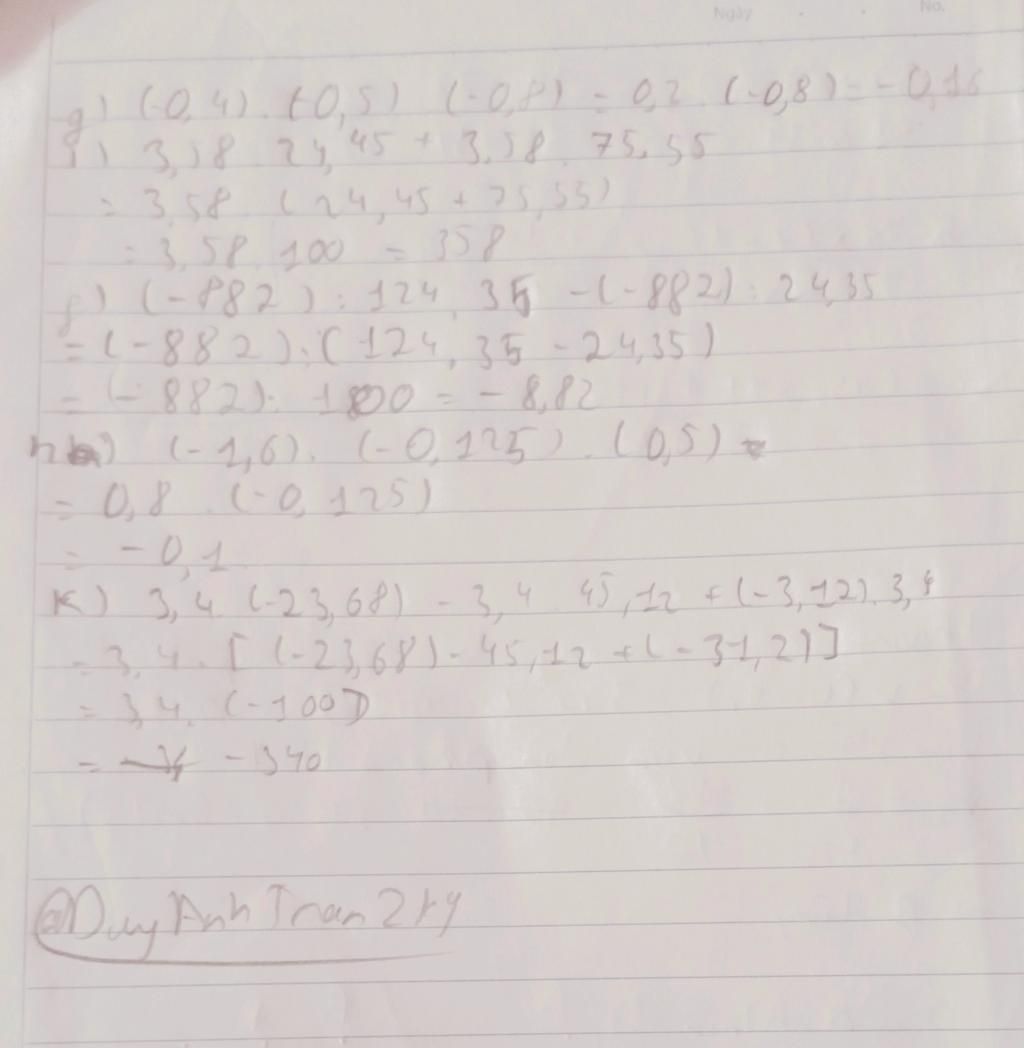 Ngày . . No.
g) (-0,4) . (-0,5) (-0,8) = 0,2 . (-0,8) = -0,16
i) 3,58 24,45 + 3,58 . 75,55
= 3,58 (24,45 + 75,55)
= 3,58 . 100 = 358
f) (-882) : 124,35 - (-882) : 24,35
= (-882) : (124,35 - 24,35)
= (-882) : 100 = -8,82
h) (-1,6) . (-0,125) . (0,5)
= 0,8 . (-0,125)
= -0,1
K) 3,4 . (-23,68) - 3,4 . 45,12 + (-3,12) . 3,4
= 3,4 . [ (-23,68) - 45,12 + (-31,2) ]
= 3,4 . (-100)
= -340
@DuyAnhTran2k9